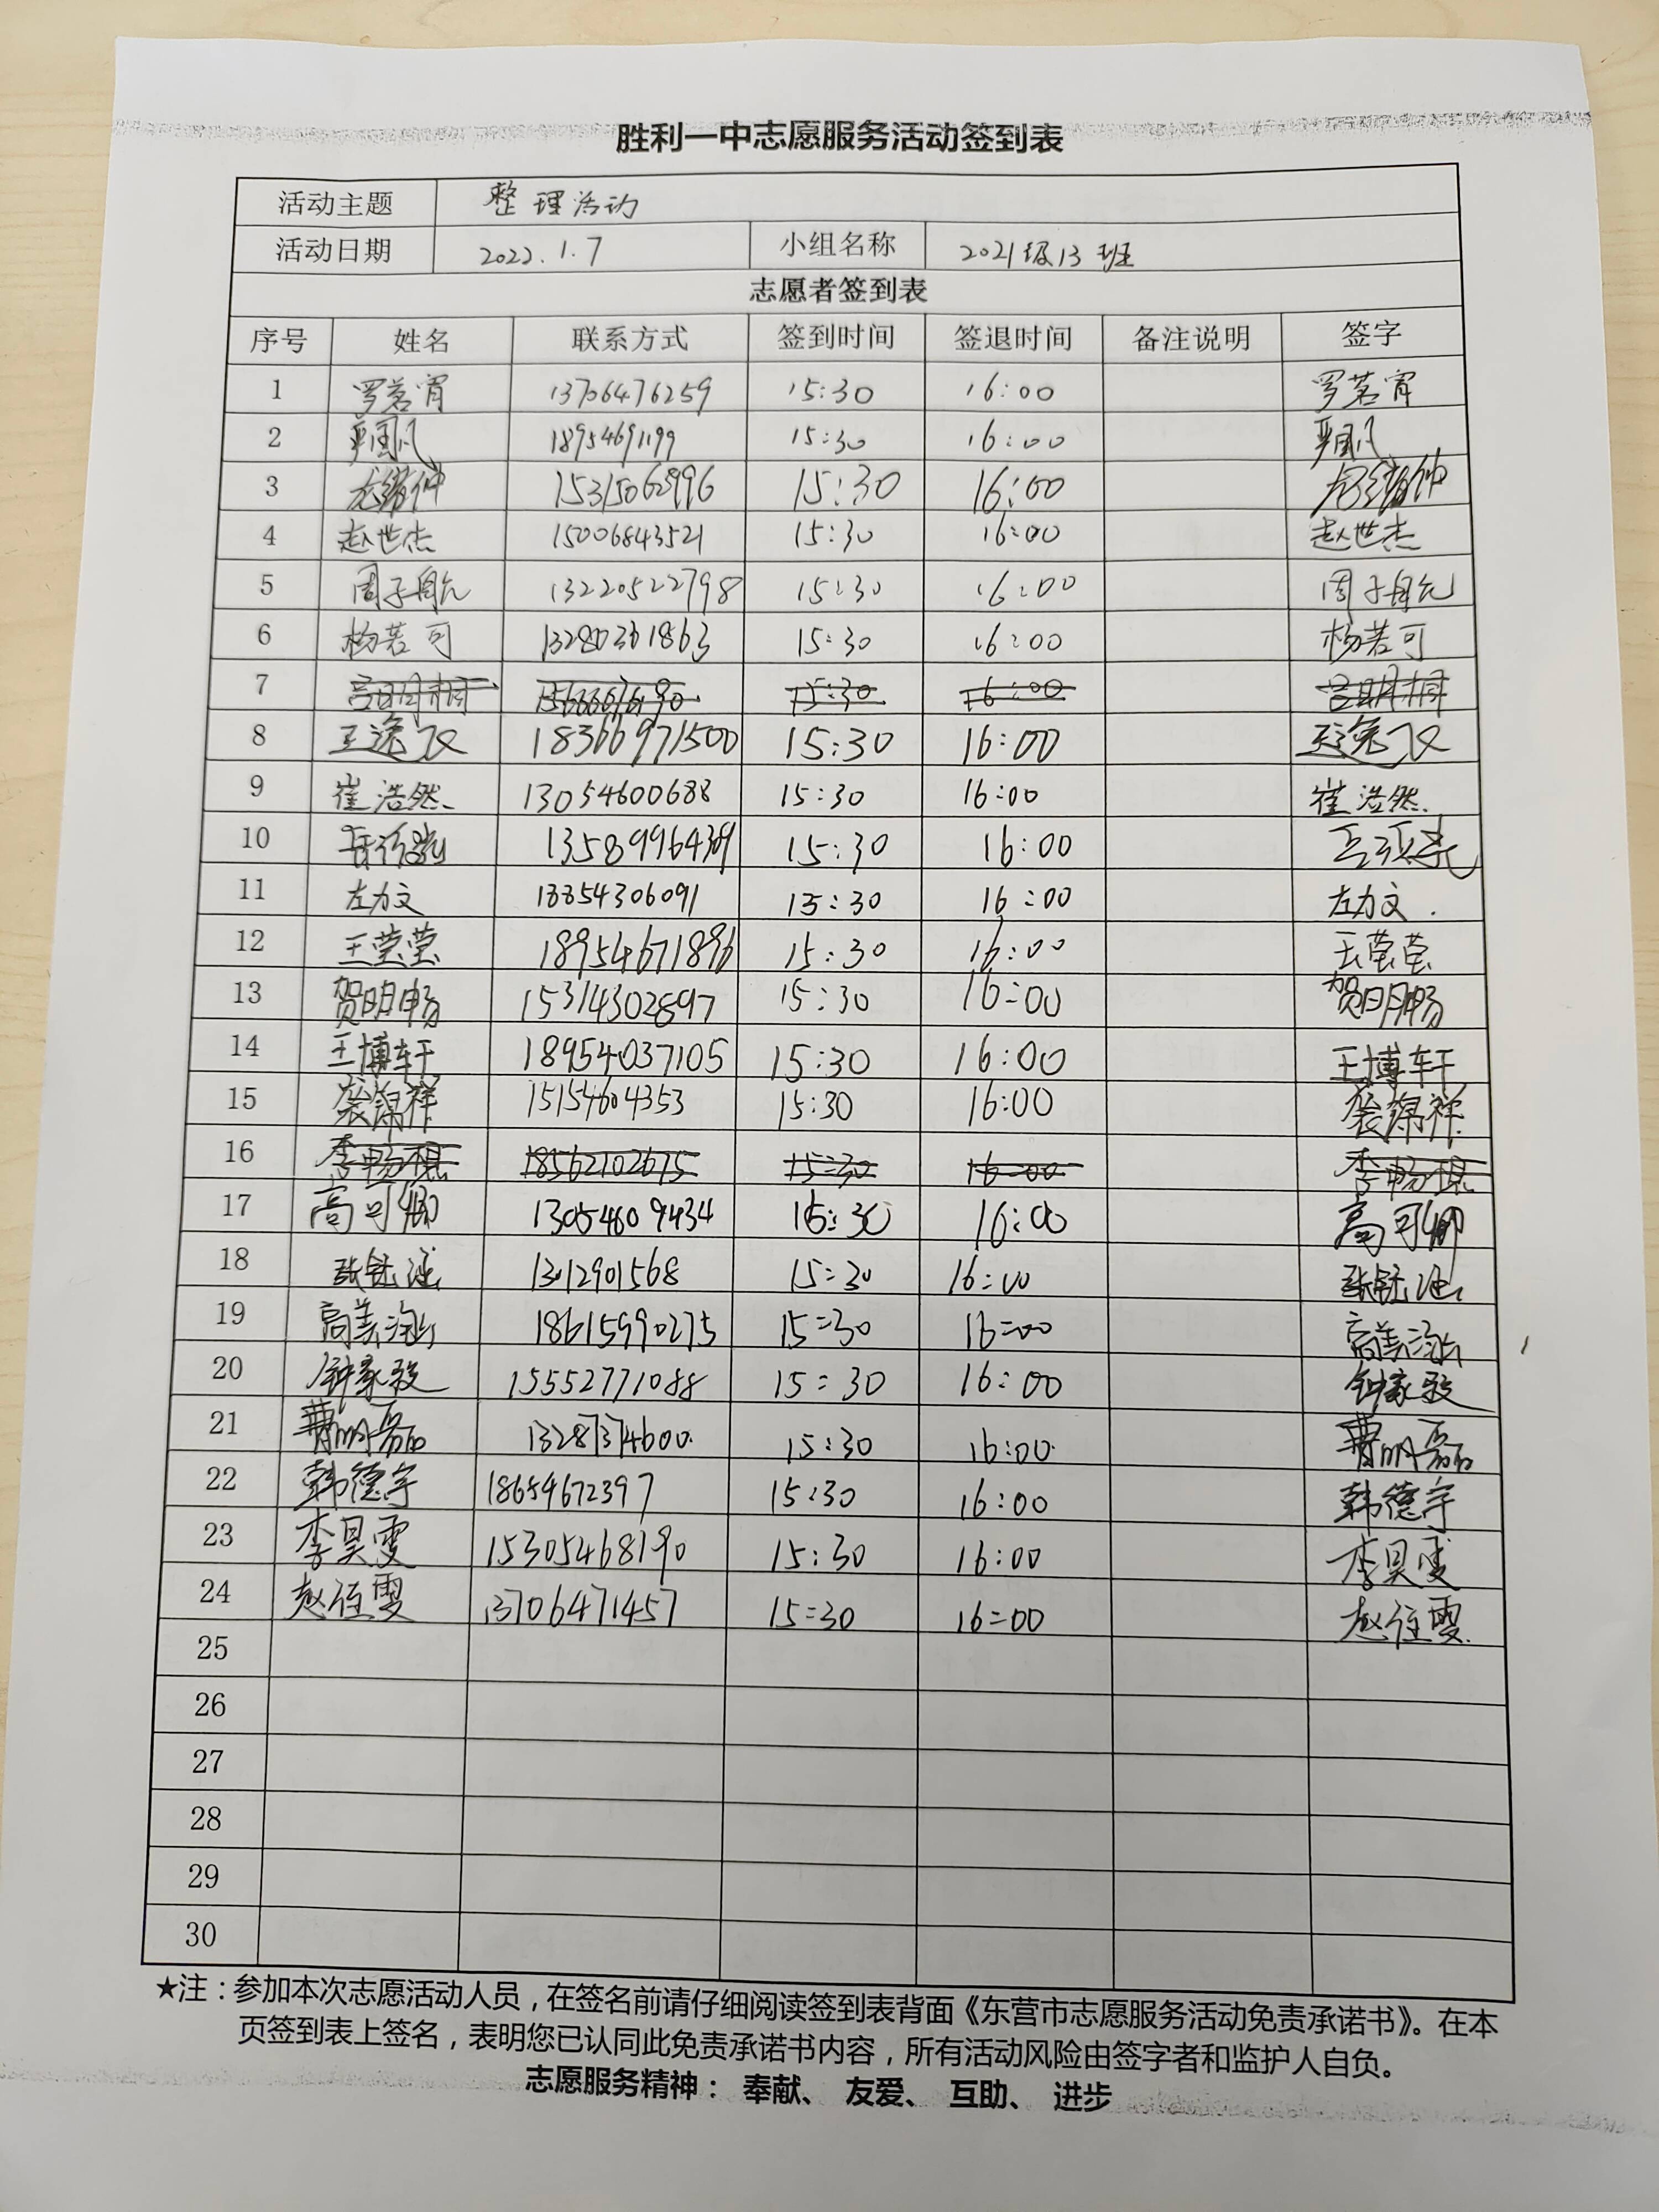 胜利一中志愿服务活动签到表
活动主题 整理活动
活动日期 2022.1.7 小组名称 2021级13班
志愿者签到表
序号 姓名 联系方式 签到时间 签退时间 备注说明 签字
1 罗茗宵 13706476259 15:30 16:00 罗茗宵
2 18954691199 15:30 16:00
3 15315062996 15:30 16:00
4 赵世杰 15006843521 15:30 16:00 赵世杰
5 周子航 13220522798 15:30 16:00 周子航
6 杨若可 13280361863 15:30 16:00 杨若可
7 15:30 16:00
8 王逸飞 18366971500 15:30 16:00 王逸飞
9 崔浩然 13054600688 15:30 16:00 崔浩然
10 15:30 16:00
11 左力文 13854306091 15:30 16:00 左力文
12 王莹莹 18954671896 15:30 16:00 王莹莹
13 贺明畅 153143028897 15:30 16:00 贺明畅
14 王博轩 18954037105 15:30 16:00 王博轩
15 袭锦祥 15154604353 15:30 16:00 袭锦祥
16 18562102675 15:30 16:00
17 高可卿 13054609434 15:30 16:00 高可卿
18 13012901568 15:30 16:00
19 18615990275 15:30 16:00
20 钟家毅 15552771088 15:30 16:00 钟家毅
21 曹明磊 13287374600 15:30 16:00 曹明磊
22 韩德宇 18654672397 15:30 16:00 韩德宇
23 李昊雯 15305468190 15:30 16:00 李昊雯
24 赵径雯 13706471457 15:30 16:00 赵径雯
25
26
27
28
29
30
★注：参加本次志愿活动人员，在签名前请仔细阅读签到表背面《东营市志愿服务活动免责承诺书》。在本
页签到表上签名，表明您已认同此免责承诺书内容，所有活动风险由签字者和监护人自负。
志愿服务精神： 奉献、 友爱、 互助、 进步